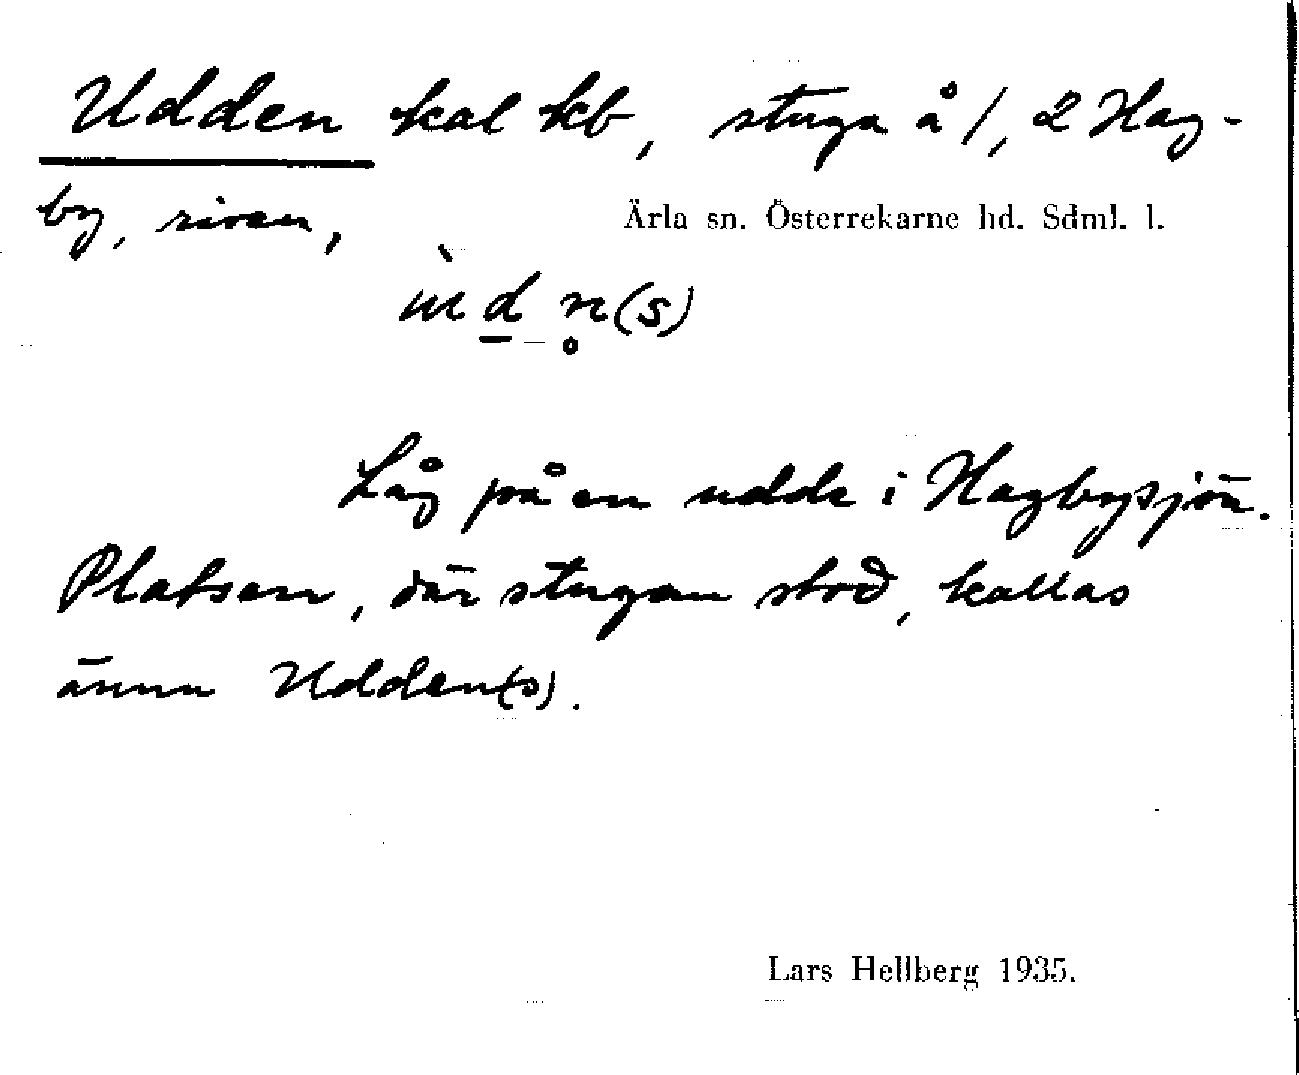 Udden kal kb, stuga å 1, 2 Hag-
by, riven,
Ärla sn. Österrekarne hd. Sdml. l.
ùd̲n̥(s)
Låg på en udde i Hagbysjön.
Platsen, där stugan stod, kallas
ännu Udden(s).
Lars Hellberg 1935.